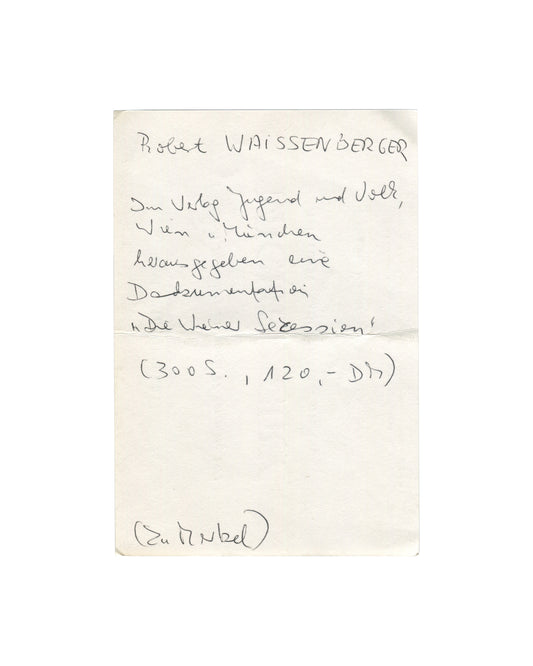 Robert WAISSENBERGER
Im Verlag Jugend und Volk,
Wien u. München
herausgegeben eine
Dokumentation
„Die Wiener Secession“
(300 S. , 120,- DM)
(Zu